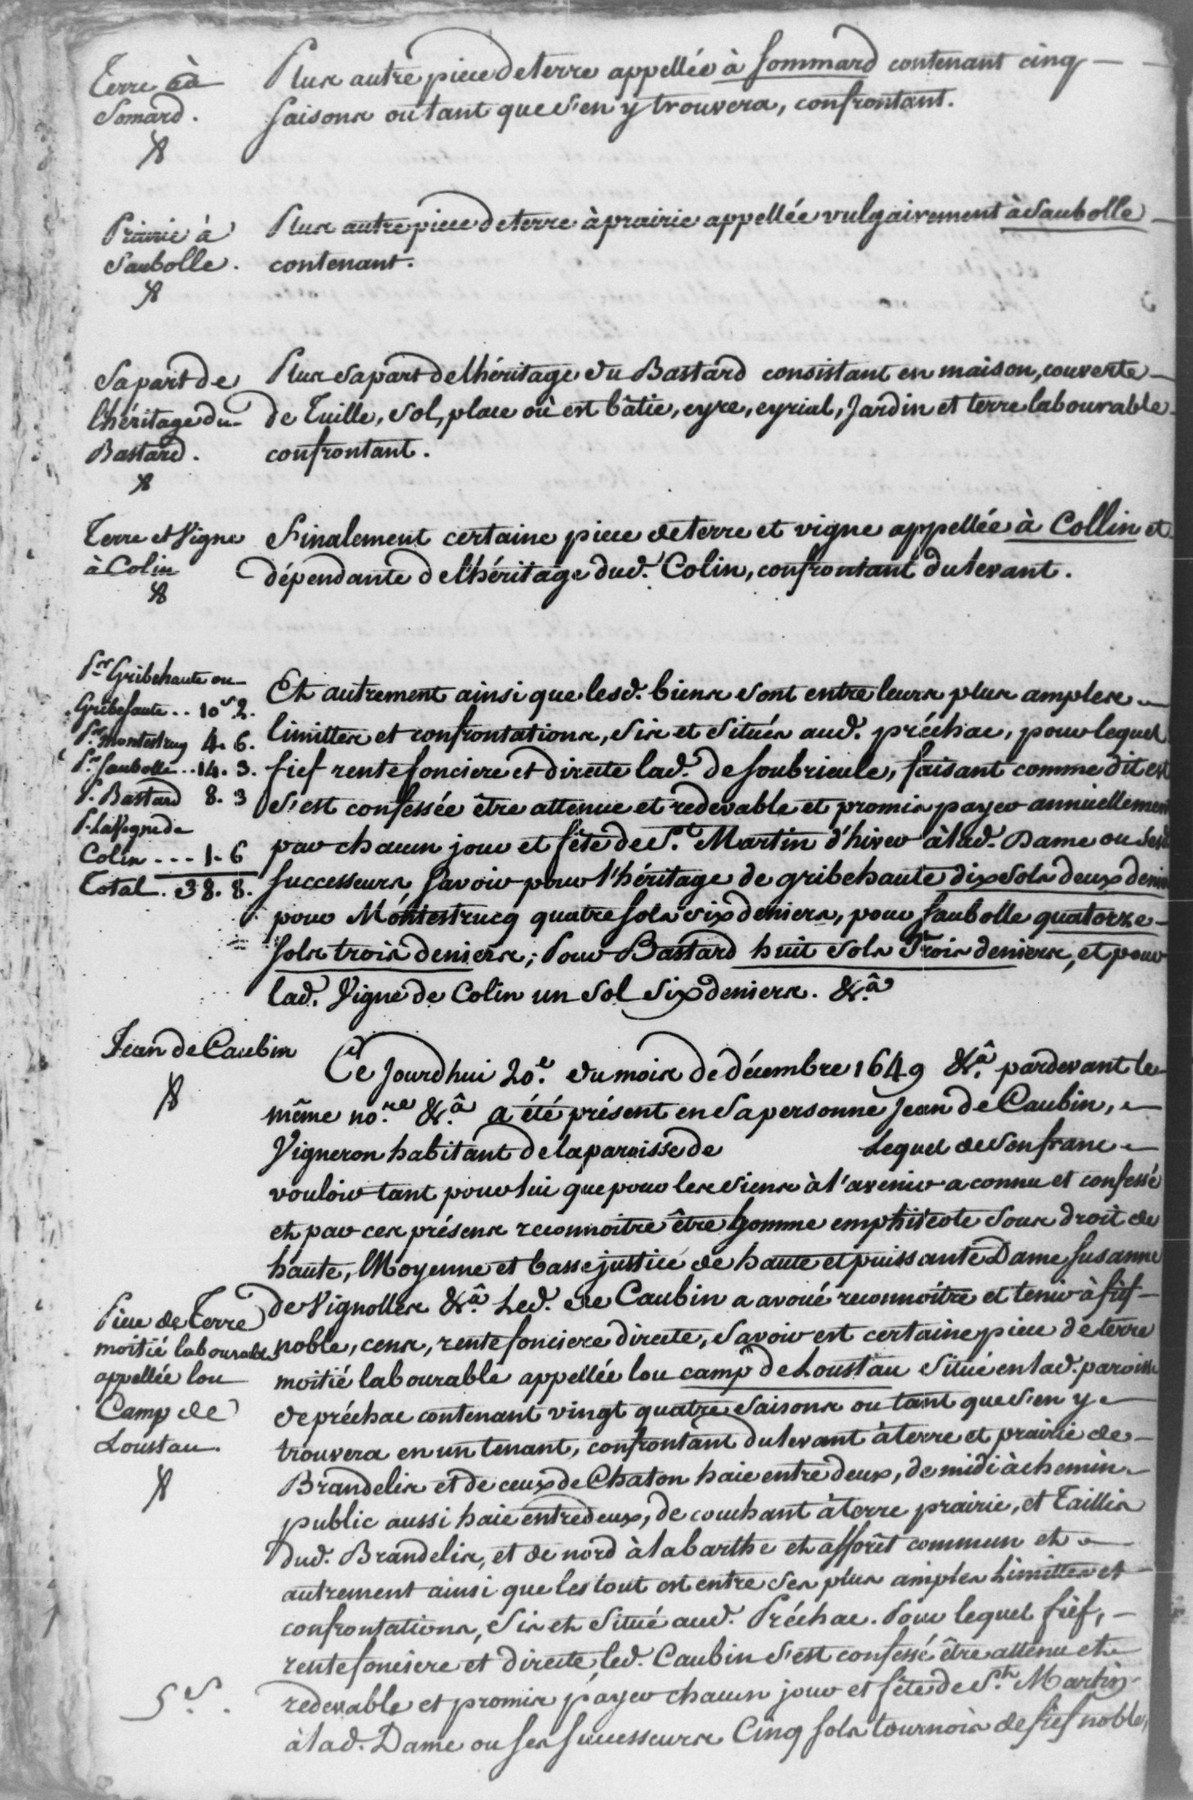 Terre à
Somard.
Plus autre piece de terre appellée à Sommard contenant cinq
saisons ou tant que s'en y trouvera, confrontant.
Prairie à
Saubolle.
Plus autre piece de terre à prairie appellée vulgairement à Saubolle
contenant.
Sa part de
l'héritage du
Bastard.
Plus sa part de l'héritage du Bastard consistant en maison, couverte
de Tuille, sol, place où est bâtie, eyre, eyrial, Jardin et terre labourable
confrontant.
Terre et Vigne
à Colin
Finalement certaine piece de terre et vigne appellée à Collin et
dépendante de l'héritage dud. Colin, confrontant du levant.
Pr. Gribehaute ou
Gribefaute .. 10s 2.
Pr. montestrug 4. 6.
Pr. Saubolle .. 14. 3.
P. Bastard 8. 3
P. la Vigne de
Colin - - - 1. 6
Total . 38. 8.
Et autrement ainsi que lesd. biens sont entre leurs plus amples
limittes et confrontations, sis et situés aud. préchac, pour lequel
fief rente fonciere et directe lad. de Soubrieule, faisant comme dit est
s'est confessée être attenue et redevable et promis payer annuellement
par chacun jour et fête de St. Martin d'hiver à lad. Dame ou
successeurs savoir pour l'héritage de gribehaute dix sols deux
pour Montestrucq quatre sols six deniers, pour Saubolle quatorze
sols trois deniers; Pour Bastard huit sols Trois deniers, et pour
lad. Vigne de Colin un sol six deniers. &.ª
Jean de Caubin
Ce Jourdhui 20e. du mois de décembre 1649 &.ª pardevant le
même no.re &.ª a été présent en sa personne Jean de Caubin,
Vigneron habitant de la paroisse de Lequel de son franc
vouloir tant pour lui que pour les siens à l'avenir a connu et confessé
et par ces présens reconnoitre être homme emphitéote sous droit de
haute, Moyenne et basse justice de haute et puissante Dame Susanne
de Vignolles &.ª Led. de Caubin a avoué reconnoitre et tenir à fief
noble, cens, rente fonciere directe, savoir est certaine piece de terre
moitié labourable appellée lou camp de Loustau situé en lad. paroisse
de préchac contenant vingt quatre saisons ou tant que s'en y
trouvera en un tenant, confrontant du levant à terre et prairie de
Brandelis et de ceux de Chaton haie entre deux, de midi à chemin
public aussi haie entre deux, de couchant à terre prairie, et Taillis
dud. Brandelis, et de nord à la barthe et afforêt commun et
autrement ainsi que les tout est entre ses plus amples Limittes et
confrontations, sis et situé aud. Préchac. Pour lequel fief,
rente fonciere et directe led. Caubin s'est confessé être attenu et
redevable et promis payer chacun jour et fête de St. Martin
à lad. Dame ou ses successeurs Cinq sols tournois de fief noble,
Piece de Terre
moitié labourable
appellée lou
Camp de
Loustau.
5s.